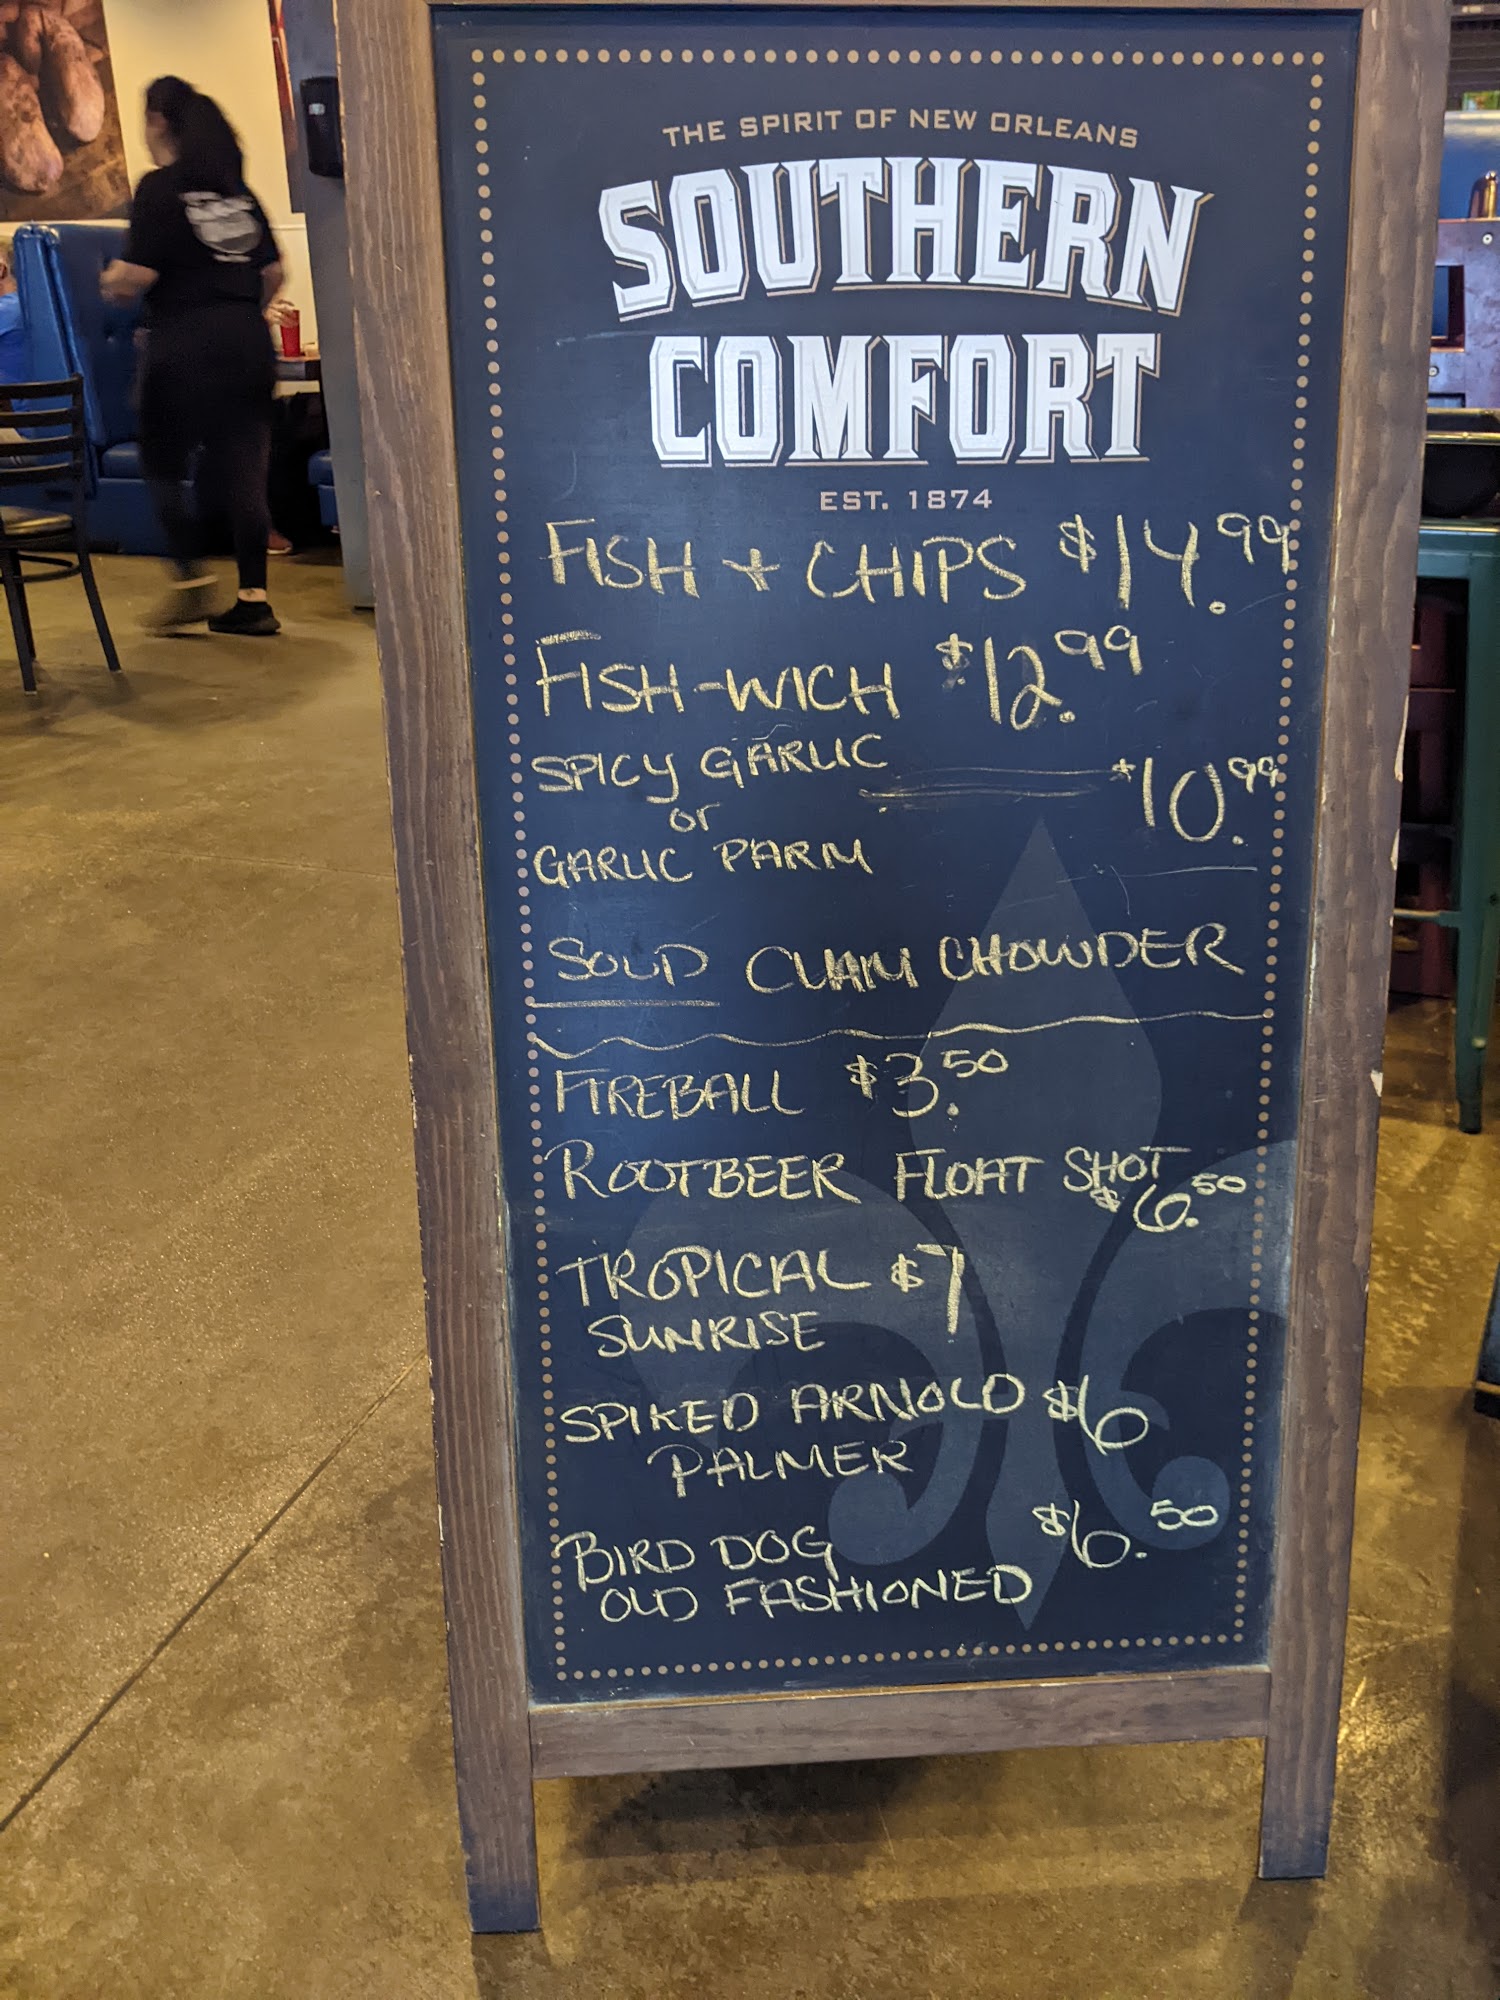 THE SPIRIT OF NEW ORLEANS
SOUTHERN
COMFORT
EST. 1874
FISH + CHIPS $14.99
FISH-WICH $12.99
SPICY GARLIC $10.99
or
GARLIC PARM
SOUP CLAM CHOWDER
FIREBALL $3.50
ROOTBEER FLOAT SHOT
$6.50
TROPICAL $7
SUNRISE
SPIKED ARNOLD $6
PALMER
BIRD DOG $6.50
OLD FASHIONED